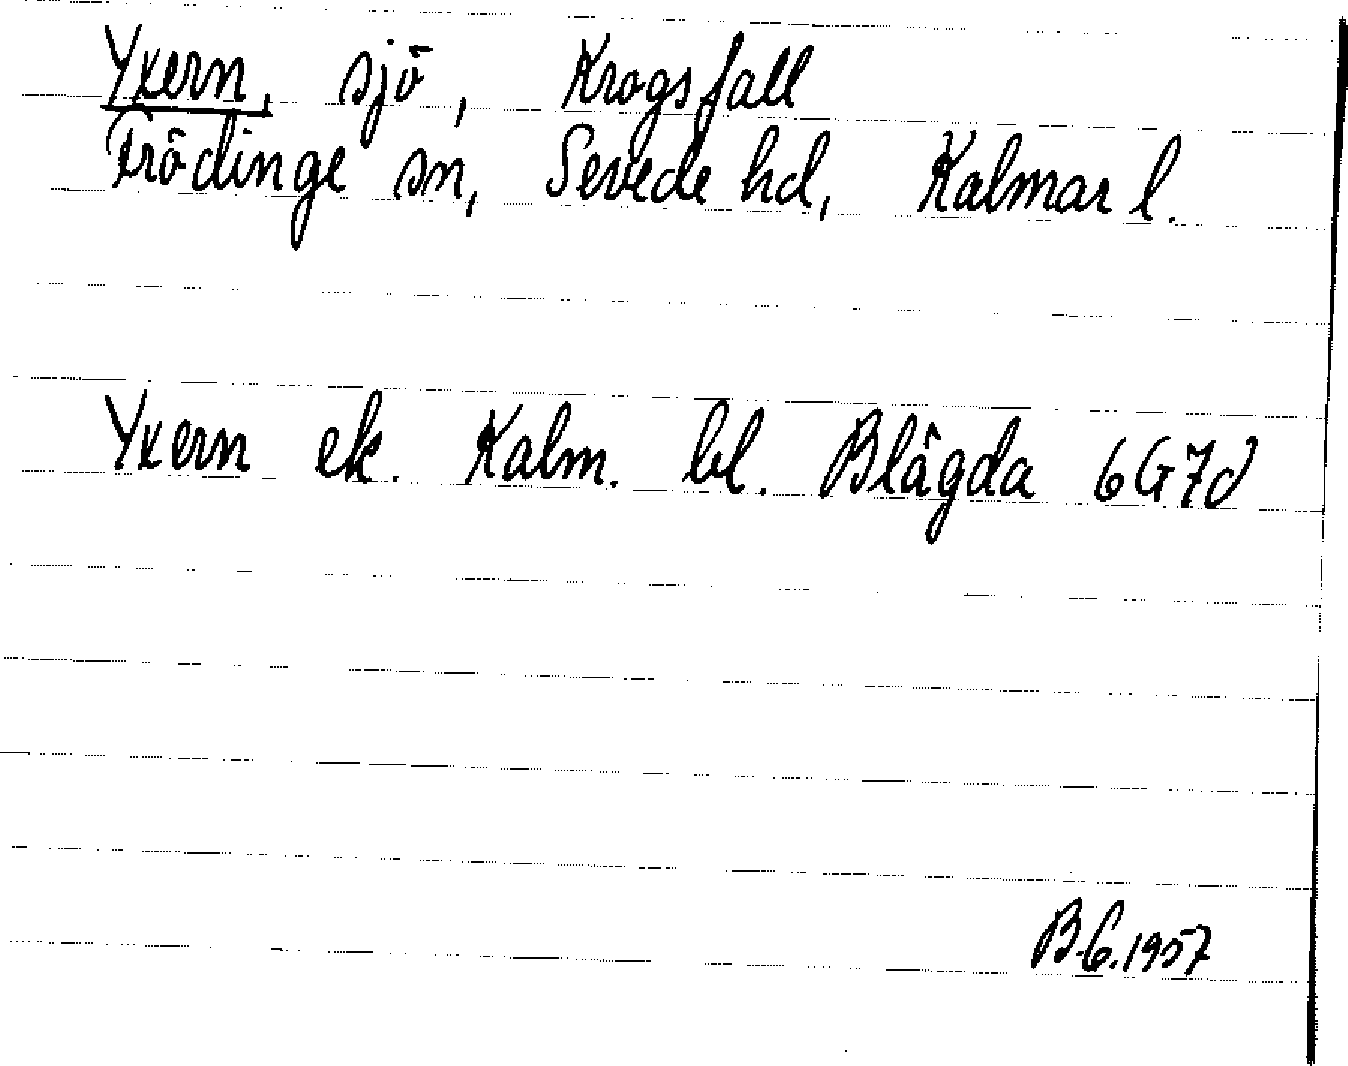 Yxern, sjö, Krogsfall
Frödinge sn, Sevede hd, Kalmar l.
Yxern ek. Kalm. bl. Blågda 6G7d
B.G.1957